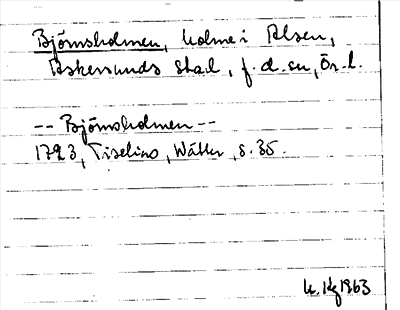 Björnsholmen, holme i Alsen,
Askersunds stad, f. d. sn, Ör. l.
-- Björnsholmen --
1723, Tiselius, Wätter, s. 35.